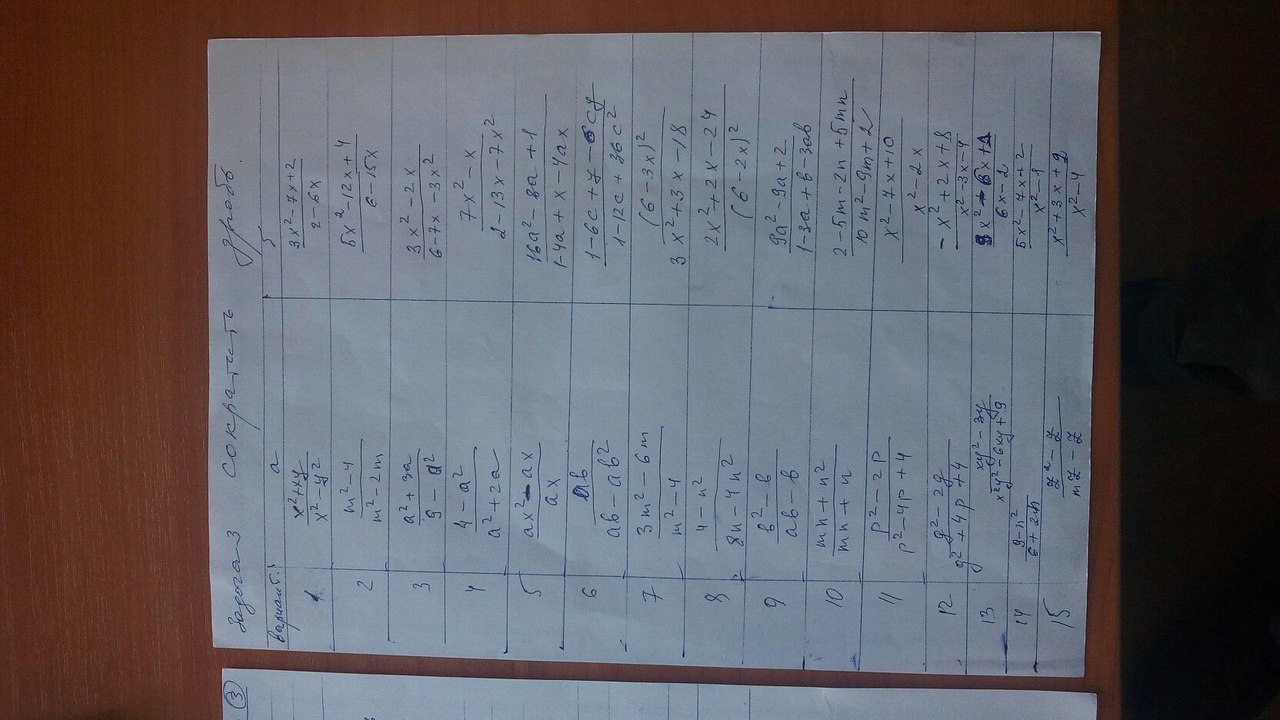 Задача 3 сократить дробь
вариант: а б
1 x²+xy/x²-y² 3x²-7x+2/2-6x
2 m²-4/m²-2m 5x²-12x+4/6-15x
3 a²+3a/9-a² 3x²-2x/6-7x-3x²
4 4-a²/a²+2a 7x²-x/2-13x-7x²
5 ax²-ax/ax 16a²-8a+1/1-4a+x-4ax
6 ab/ab-ab² 1-6c+y-6cy/1-12c+36c²
7 3m²-6m/m²-4 (6-3x)²/3x²+3x-18
8 4-n²/8n-4n² 2x²+2x-24/(6-2x)²
9 b²-b/ab-b 9a²-9a+2/1-3a+b-3ab
10 mn+n²/mn+n 2-5m-2n+5mn/10m²-9m+2
11 p²-2p/p²-4p+4 x²-7x+10/x²-2x
12 g²-2g/g²+4p+4 -x²+2x+8/x²-3x-4
13 xy²-3y/x²y²-6xy+9 9x²-6x+1/6x-2
14 9-n²/6+2n 5x²-7x+2/x²-1
15 z²-z/mz-z x²+3x+2/x²-4
3